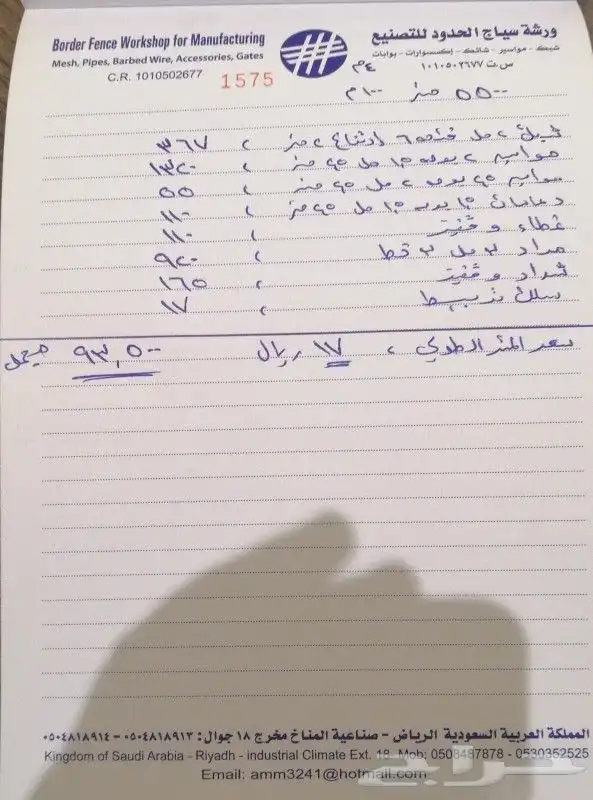 ورشة سياج الحدود للتصنيع
شبك - مواسير - شائك - إكسسوارات - بوابات
س.ت ١٠١٠٥٠٢٦٧٧
Border Fence Workshop for Manufacturing
Mesh, Pipes, Barbed Wire, Accessories, Gates
C.R. 1010502677
1575
٥٥٠٠ متر
شبك ٢ مل فتحة ٦ ارتفاع ٢ متر ، ٣٦٧
مواسير ٢ بوصة ١٫٥ مل ٢٥ متر ، ١٣٢٠
مواسير ٢٥ بوصة ٢ مل ٢٥ متر ، ٥٥
دعامات ١٫٥ بوصة ١٫٥ مل ٢٥ متر ، ١١٠
غطاء و قفيز ، ١١٠
مداد ٣ مل ٣ خط ، ٩٢٠
شداد و قفيز ، ١٦٥
سلك تربيط ، ١٧
سعر المتر الطولي ، ١٧ ريال ٩٣,٥٠٠
المملكة العربية السعودية الرياض - صناعية المناخ مخرج ١٨ جوال: ٠٥٠٤٨١٨٩١٣ - ٠٥٠٤٨١٨٩١٤
Kingdom of Saudi Arabia - Riyadh - industrial Climate Ext. 18 Mob: 0508487878 - 0530352525
Email: amm3241@hotmail.com
حراج